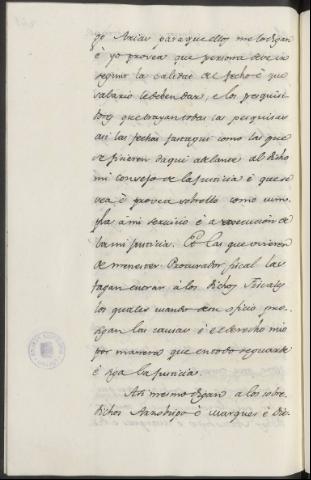 go Arias para que ellos me lo digan
é yo provea que persona deve ir
segunt la calidat del fecho é que
salario le deben dar, e los pesquisi
dores que trayan todas las pesquisas
asi las fechas fasta aqui como las que
se ficieren daqui adelante al dicho
mi consejo de la justicia é que se
vea é provea sobrello como cum
pla á mi servicio é a execucion de
la mi justicia. E las que vinieren
de menester Procurador fiscal las
fagan enviar á los dichos Fiscales
los quales usando de su oficio pro
sigan las causas é el derecho mio
por manera que en todo se guarde
é siga la justicia.
Asi mesmo digan a los sobre
dichos Arzobispo é Marques é Die